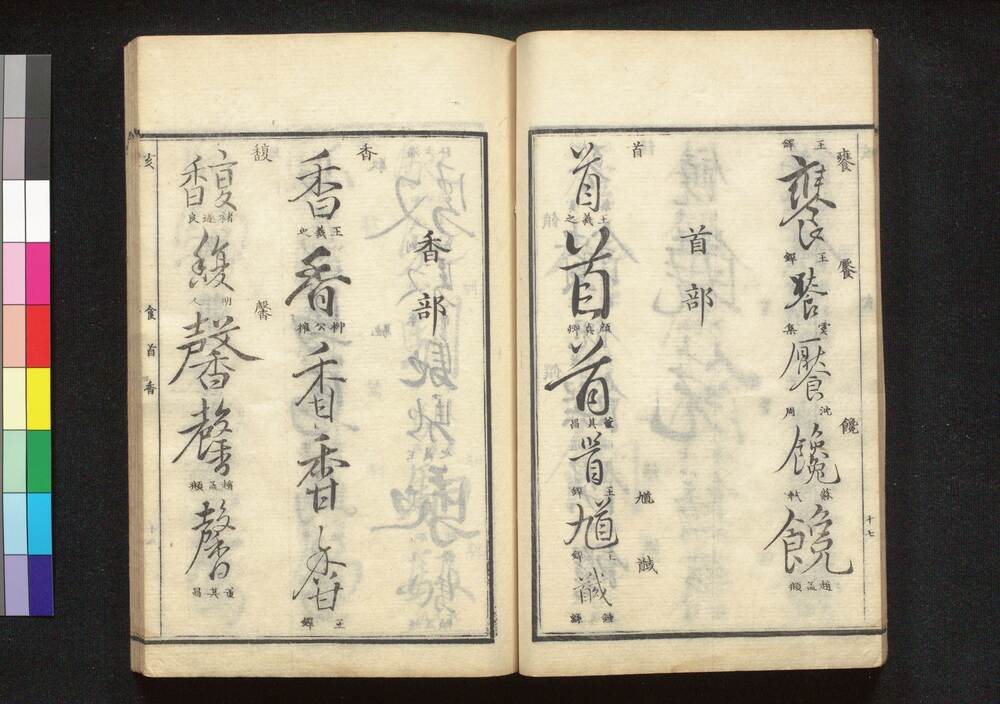 饔
饜
饞
饔
王鐸
饔
王鐸
饜
饞
沈周
饞
蘇軾
趙孟頫
十七
首部
首
馘
首
王羲之
首
顏真卿
首
董其昌
首
王鐸
馗
王鐸
馘
香部
香
香
王羲之
香
柳公權
香
香
香
王鐸
馥
馨
馥
褚遂良
馥
明人
馨
馨
趙孟頫
馨
董其昌
亥
食首香